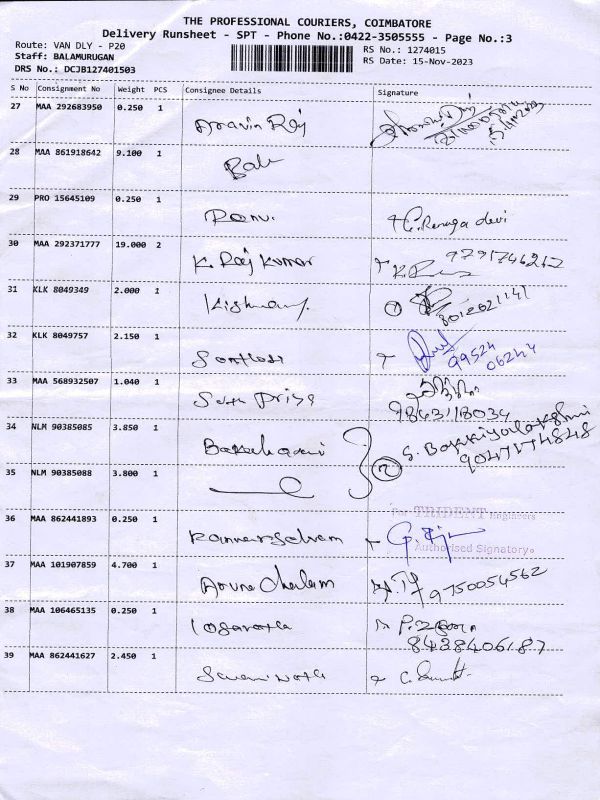 THE PROFESSIONAL COURIERS, COIMBATORE
Delivery Runsheet - SPT - Phone No.:0422-3505555 - Page No.:3
Route: VAN DLY - P20
RS No.: 1274015
Staff: BALAMURUGAN
RS Date: 15-Nov-2023
DRS No.: DCJB127401503
S No Consignment No Weight PCS Consignee Details Signature
27 MAA 292683950 0.250 1 Aravin Raj
28 MAA 861918642 9.100 1
29 PRO 15645109 0.250 1 Renu. G. Renuga devi
30 MAA 292371777 19.000 2 K. Raj Kumar
9791746212
31 KLK 8049349 2.000 1 1
8012621141
32 KLK 8049757 2.150 1 Santhosh
99524
06244
33 MAA 568932507 1.040 1 Priya
9843118034
34 NLM 90385085 3.850 1 2 S. Bakkiyalakshmi
9047174848
35 NLM 90385088 3.800 1
For TRIDENT Engineers
36 MAA 862441893 0.250 1
Authorised Signatory
37 MAA 101907859 4.700 1 Arunachalam 9750054562
38 MAA 106465135 0.250 1
8438406187
39 MAA 862441627 2.450 1